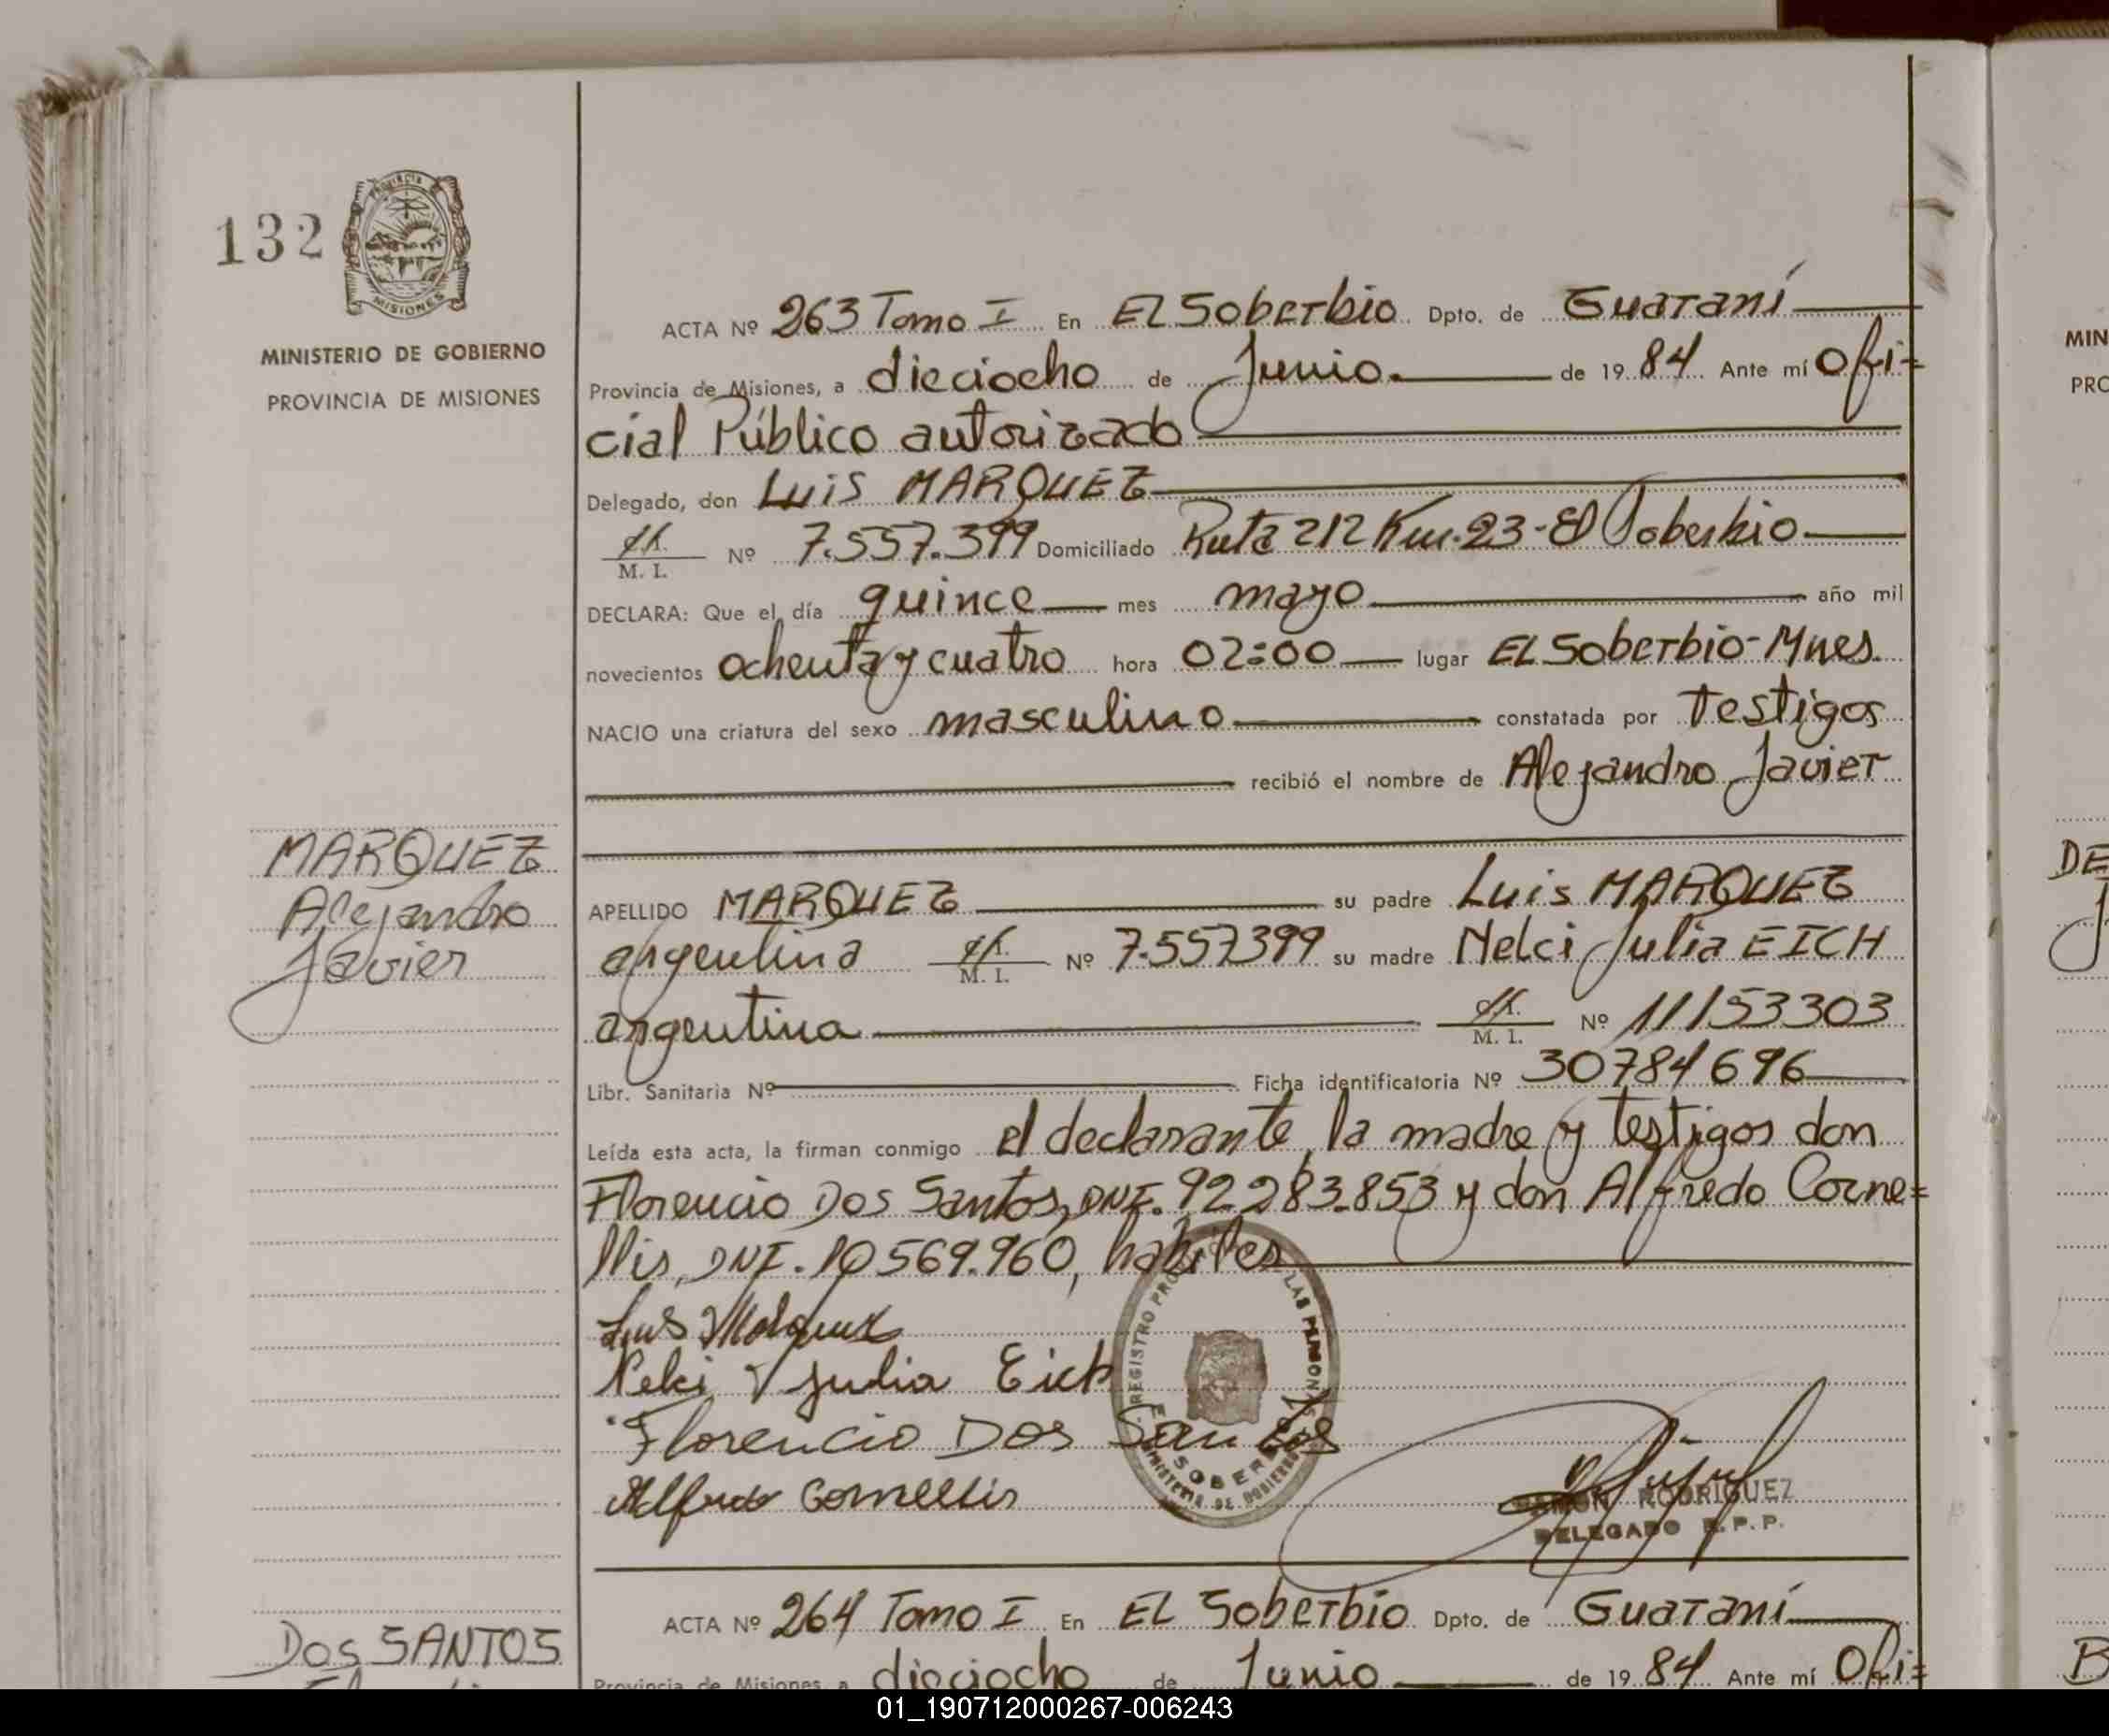 132
PROVINCIA DE
MISIONES
MINISTERIO DE GOBIERNO
PROVINCIA DE MISIONES
ACTA Nº 263 Tomo I En El Soberbio Dpto. de Guaraní
Provincia de Misiones, a dieciocho de Junio. de 1984 Ante mí Ofi=
cial Público autorizado
Delegado, don Luis MARQUEZ
M. I. Nº 7.557.399 Domiciliado Ruta 212 Km. 23 - El Soberbio
DECLARA: Que el día quince mes mayo año mil
novecientos ochenta y cuatro hora 02:00 lugar El Soberbio - Mnes.
NACIO una criatura del sexo masculino constatada por testigos
recibió el nombre de Alejandro Javier
MARQUEZ
Alejandro
Javier
APELLIDO MARQUEZ su padre Luis MARQUEZ
argentina M. I. Nº 7.557399 su madre Nelci Julia EICH
argentina M. I. Nº 11153303
Libr. Sanitaria Nº Ficha identificatoria Nº 30784696
Leída esta acta, la firman conmigo el declarante, la madre y testigos don
Florencio Dos Santos, DNI. 92.283.853 y don Alfredo Corne=
llis, DNI. 10569.960, habiles
Luis
Nelci Julia Eich
Florencio Dos Santos
Alfredo Cornellis
REGISTRO LAS PERSONAS
SOBERBIO
MINISTERIO DE GOBIERNO
RAMON RODRIGUEZ
DELEGADO R.P.P.
ACTA Nº 264 Tomo I En El Soberbio Dpto. de Guaraní
Dos SANTOS
Provincia de Misiones a dieciocho de Junio de 1984 Ante mí Ofi=
MIN
PRO
DE
J
B
01_190712000267-006243